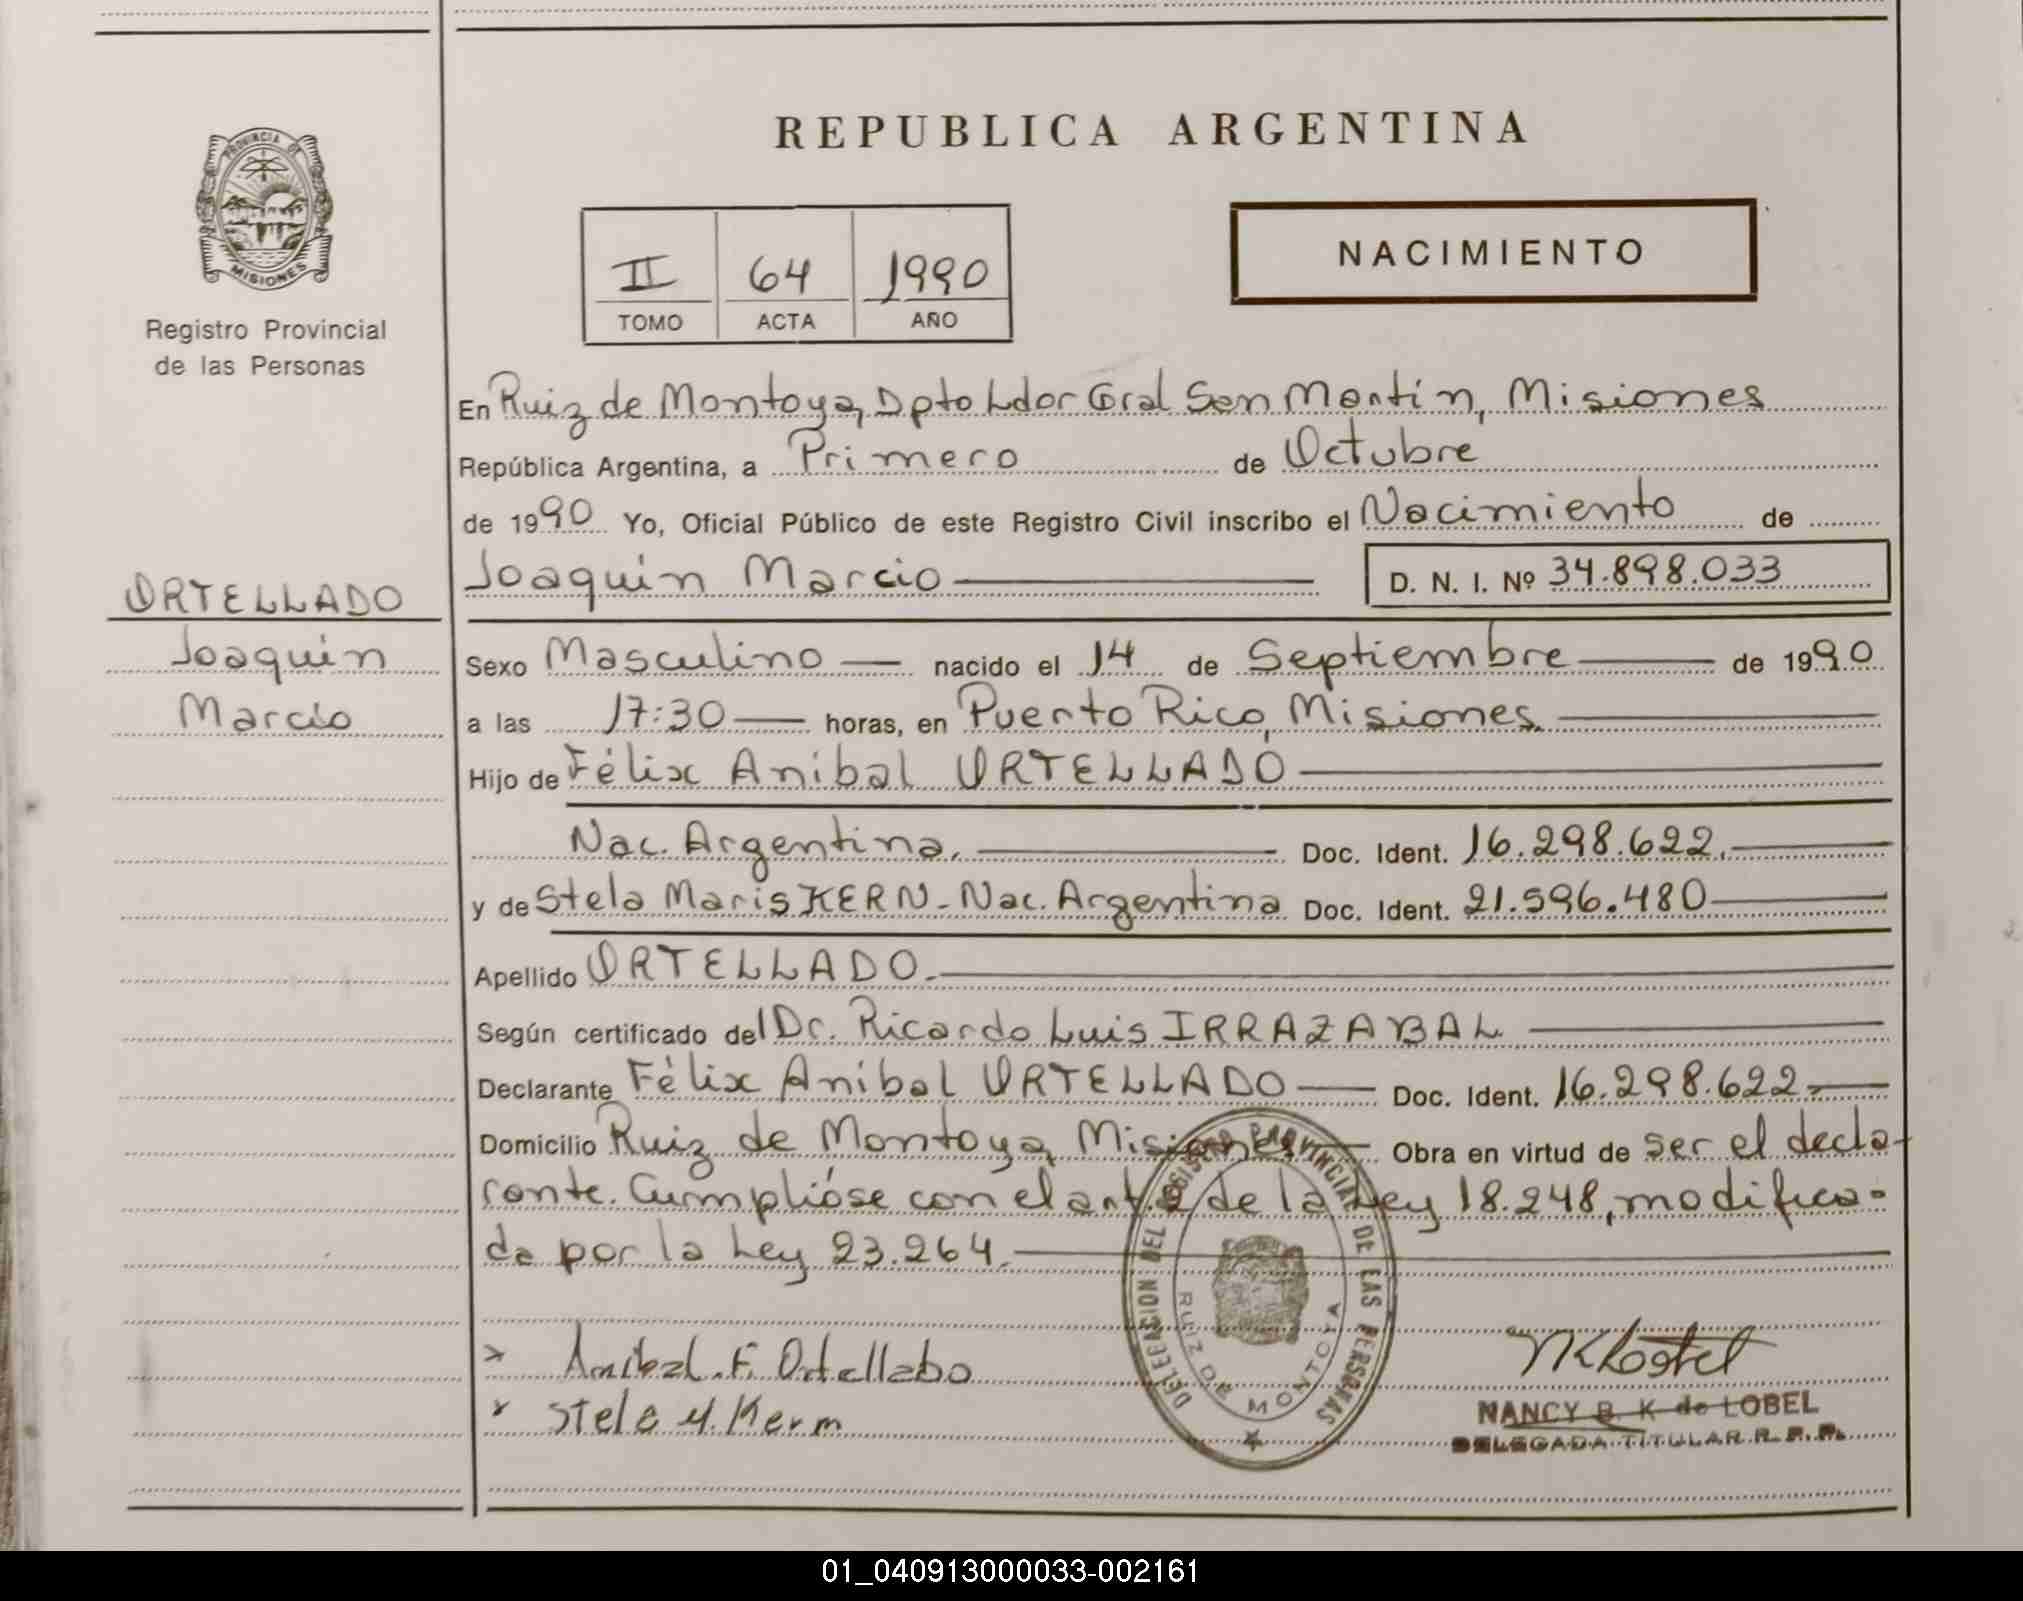 PROVINCIA DE
MISIONES
Registro Provincial
de las Personas
ORTELLADO
Joaquín
Marcio
REPUBLICA ARGENTINA
II 64 1990
TOMO ACTA AÑO
NACIMIENTO
En Ruiz de Montoya, Dpto Ldor Gral San Martín, Misiones
República Argentina, a Primero de Octubre
de 1990 Yo, Oficial Público de este Registro Civil inscribo el Nacimiento de
Joaquín Marcio D. N. I. Nº 34.898.033
Sexo Masculino nacido el 14 de Septiembre de 1990
a las 17:30 horas, en Puerto Rico, Misiones.
Hijo de Félix Aníbal ORTELLADO
Nac. Argentina. Doc. Ident. 16.298.622.
y de Stela Maris KERN - Nac. Argentina Doc. Ident. 21.596.480
Apellido ORTELLADO.
Según certificado del Dr. Ricardo Luis IRRAZABAL
Declarante Félix Aníbal ORTELLADO Doc. Ident. 16.298.622.
Domicilio Ruiz de Montoya, Misiones Obra en virtud de ser el decla-
rante. Cumplióse con el art. 2 de la Ley 18.248, modifica-
da por la Ley 23.264.
x Anibal.F. Ortellado
x Stela M. Kern
DELEGACION DEL REGISTRO PROVINCIAL DE LAS PERSONAS
RUIZ DE MONTOYA
NANCY B. K de LOBEL
DELEGADA TITULAR R. P. P.
01_040913000033-002161